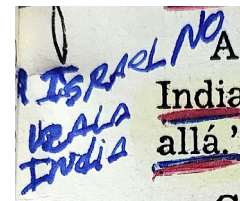 A ISRAEL NO
A
VEALA
India
INDIA
allá.'